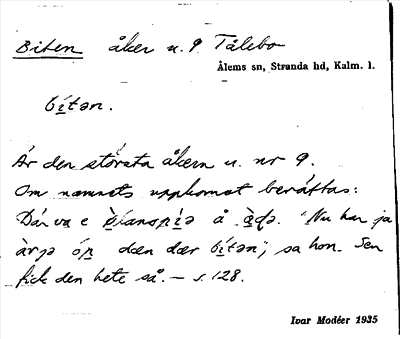 Biten åker u. 9 Tålebo
Ålems sn, Stranda hd, Kalm. l.
bítən.
Är den största åkern u. nr 9.
Om namnets uppkomst berättas:
Där va e å "Nu har ja
dæn dær bítən", sa hon. Sen
fick den hete så. – s. 128.
Ivar Modéer 1935